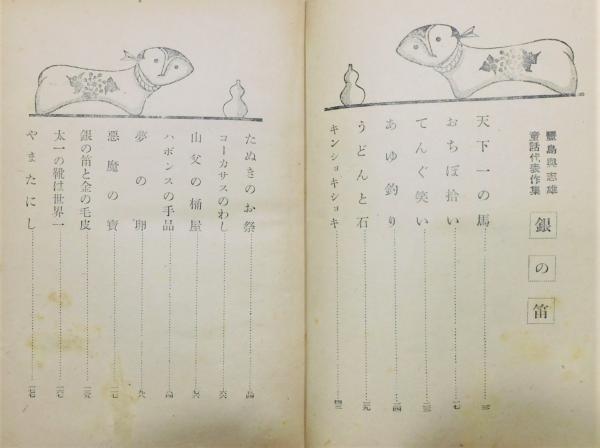 豐島與志雄
童話代表作集
銀の笛
天下一の馬
おちぼ拾い
てんぐ笑い
あゆ釣り
うどんと石
キンショキショキ
たぬきのお祭
コーカサスのわし
山父の桶屋
ハボンスの手品
夢の卵
悪魔の寶
銀の笛と金の毛皮
太一の靴は世界一
やまたにし